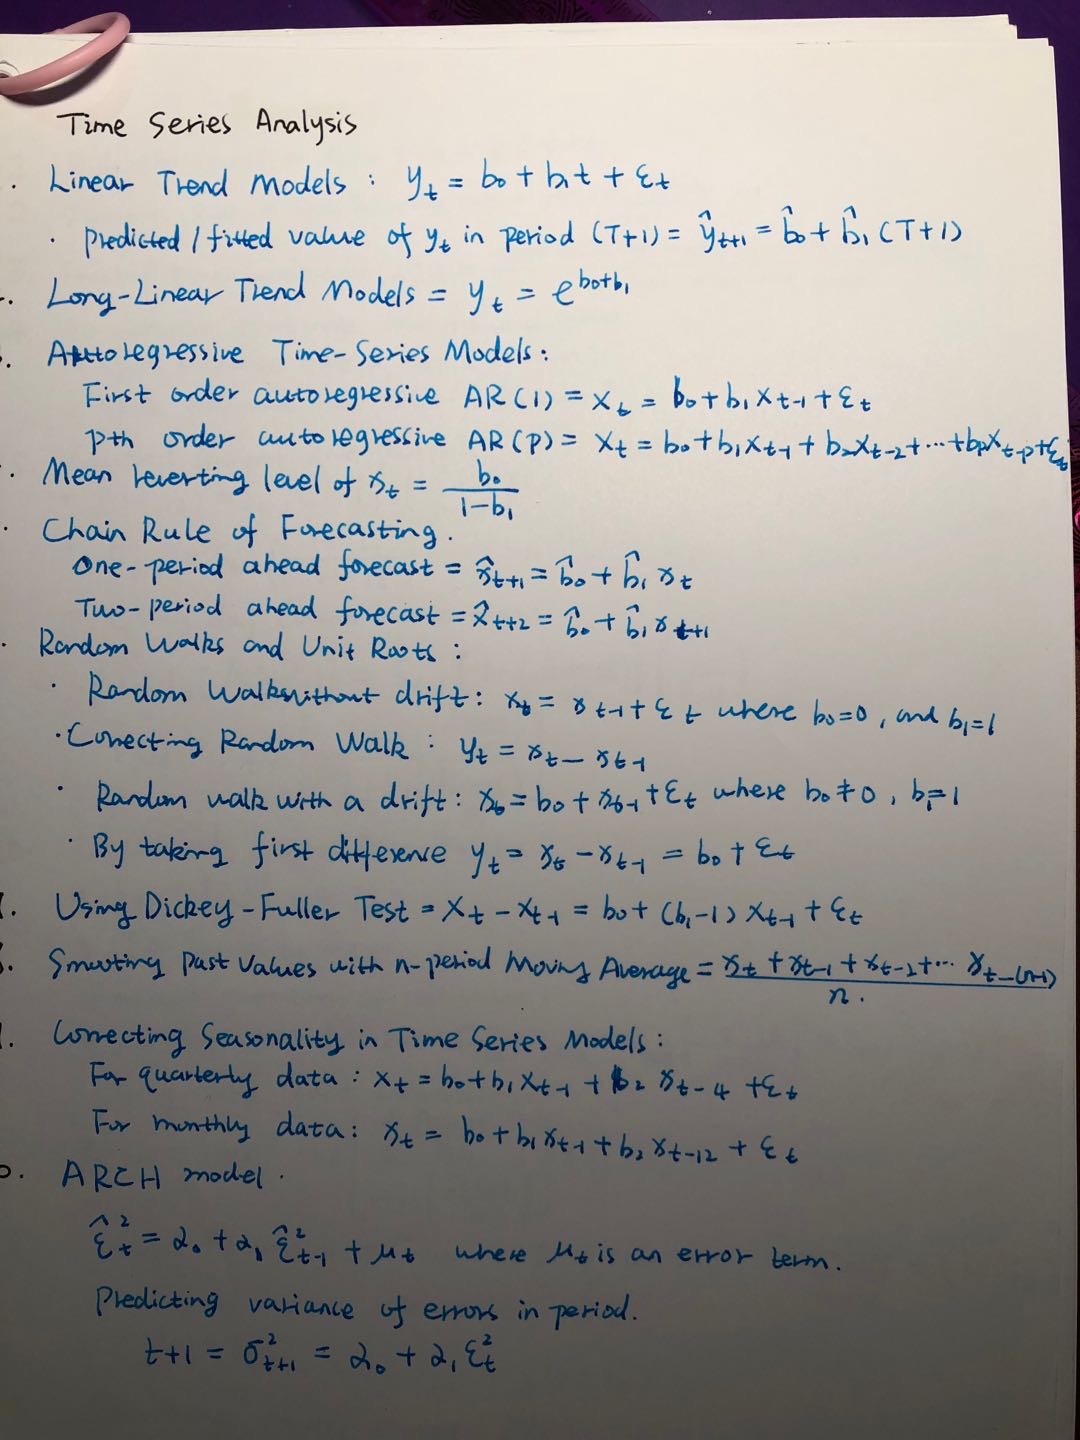 Time Series Analysis
. Linear Trend Models : yₜ = b₀ + b₁t + εₜ
· predicted / fitted value of yₜ in period (T+1) = ŷₜ₊₁ = b̂₀ + b̂₁ (T+1)
. Long-Linear Trend Models = yₜ = e^(b₀+b₁)
. Autoregressive Time-Series Models :
First order autoregressive AR(1) = xₜ = b₀ + b₁xₜ₋₁ + εₜ
pth order autoregressive AR(p) = xₜ = b₀ + b₁xₜ₋₁ + b₂xₜ₋₂ + ··· + bₚxₜ₋ₚ + εₜ
. Mean reverting level of xₜ = b₀ / (1-b₁)
. Chain Rule of Forecasting.
One-period ahead forecast = x̂ₜ₊₁ = b̂₀ + b̂₁ xₜ
Two-period ahead forecast = x̂ₜ₊₂ = b̂₀ + b̂₁ xₜ₊₁
. Random Walks and Unit Roots :
· Random Walks without drift : xₜ = xₜ₋₁ + εₜ where b₀=0, and b₁=1
· Correcting Random Walk : yₜ = xₜ - xₜ₋₁
· Random walk with a drift : xₜ = b₀ + xₜ₋₁ + εₜ where b₀≠0, b₁=1
· By taking first difference yₜ = xₜ - xₜ₋₁ = b₀ + εₜ
. Using Dickey-Fuller Test = xₜ - xₜ₋₁ = b₀ + (b₁-1) xₜ₋₁ + εₜ
. Smooting Past Values with n-period Moving Average = (xₜ + xₜ₋₁ + xₜ₋₂ + ··· xₜ₋₍ₙ₋₁₎) / n.
. Correcting Seasonality in Time Series Models :
For quarterly data : xₜ = b₀ + b₁xₜ₋₁ + b₂ xₜ₋₄ + εₜ
For monthly data : xₜ = b₀ + b₁xₜ₋₁ + b₂xₜ₋₁₂ + εₜ
0. ARCH model.
ε̂ₜ² = α₀ + α₁ ε̂ₜ₋₁² + μₜ where μₜ is an error term.
Predicting variance of errors in period.
t+1 = σ²ₜ₊₁ = α₀ + α₁ εₜ²